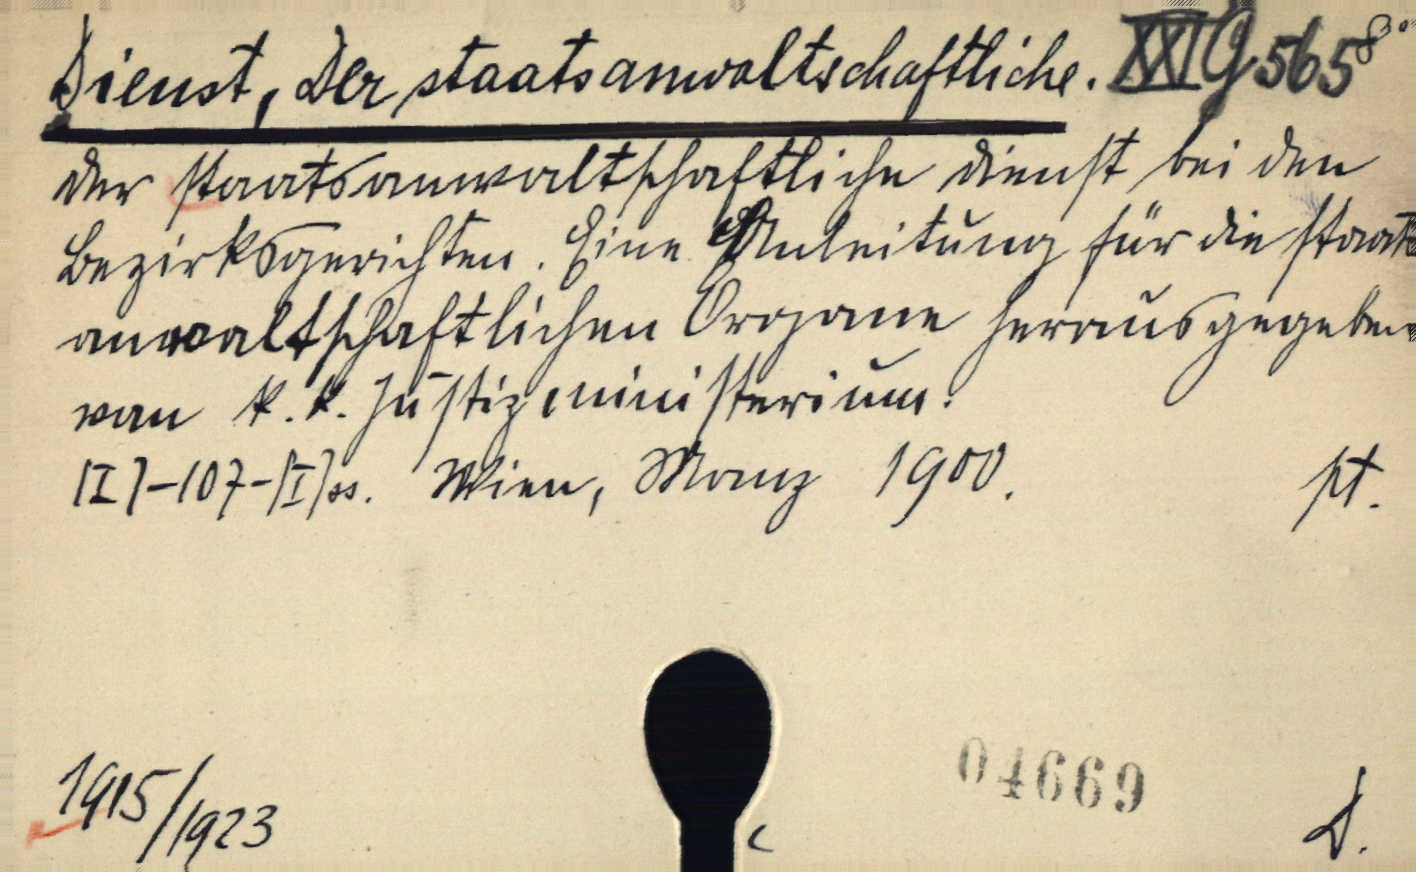 Dienst, Der staatsanwaltschaftliche. XXI G 565 8°
Der staatsanwaltschaftliche Dienst bei den
Bezirksgerichten. Eine Anleitung für die staats
anwaltschaftlichen Organe herausgegeben
vom k. k. Justizministerium.
[I]-107-[I] ss. Wien, Manz 1900. pt.
04669
1915/1923
D.